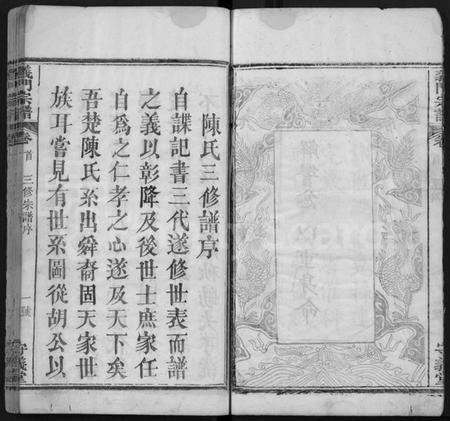 陳氏三修譜序
自諜記書三代遂修世表而譜
之義以彰降及後世士庶家任
自為之仁孝之心遂及天下矣
吾楚陳氏系出舜裔固天家世
族耳嘗見有世系圖從胡公以
義門宗譜 卷首 三修宗譜序 一號 守義堂
義門宗譜
守義堂